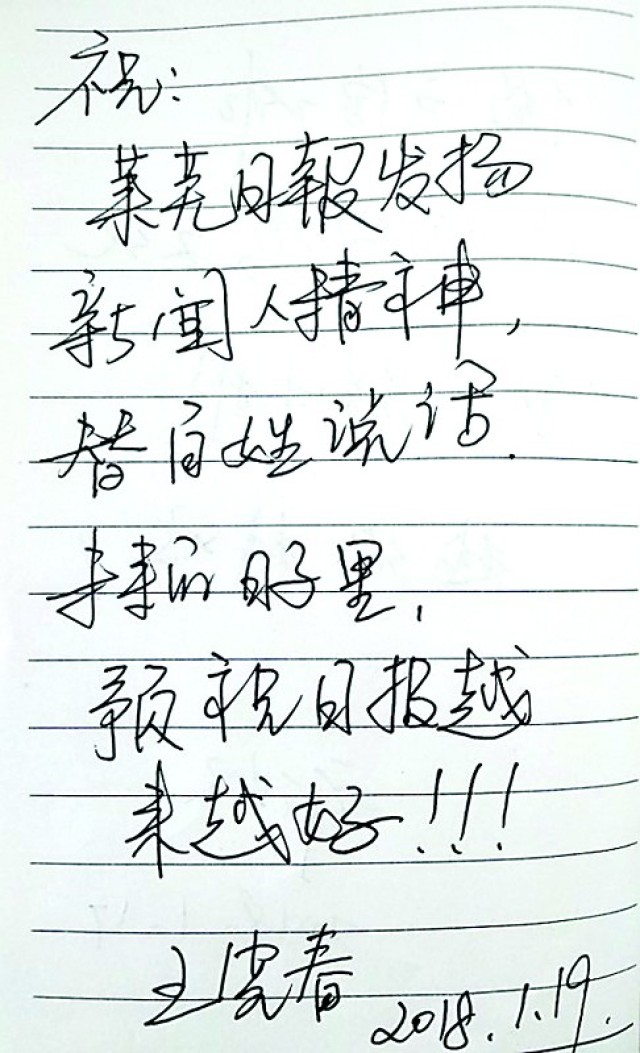 祝:
莱芜日報发扬
新闻人精神,
替百姓说话.
未来的日子里,
预祝日报越
来越好!!!
王春
2018.1.19.